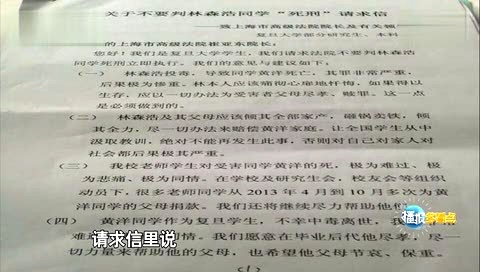 关于不要判林森浩同学“死刑”请求信
——致上海市高级法院院长及有关领
复旦大学部分研究生、本科
的上海市高级法院崔亚东院长:
您好!我们是复旦大学学生,我们请求法院不要判林森浩
同学死刑立即执行。我们的意见与建议如下:
(一) 林森浩投毒,导致同学黄洋死亡,其罪非常严重,
后果极为惨重。林本人应该痛彻心扉地忏悔,如果得以
生存,应以一切办法为受害者父母尽孝、赎罪。这一点
是必须做到的。
(二) 林森浩及其父母应该倾其全部家产,砸锅卖铁,倾
其全力,尽一切办法来赔偿黄洋家庭。让全国学生从中
汲取教训,绝对不能再发生此事,否则对自己对家人对
社会都后果极其严重。
(三) 我校老师学生对受害同学黄洋的死,极为难过、极
为悲痛、极为同情。在学校及研究生会,校友会等组织
动员下,很多老师同学从 2013 年 4 月到 10 月多次为黄
洋同学的父母捐款。我们还将继续尽力帮助他
(四) 黄洋同学作为复旦学生,不幸中毒离世,我
难
们。我们愿意在毕业后代他尽孝,尽一
切力量来帮助他的父母,也希望他父母节哀、保重。
请求信里说
播报多看点